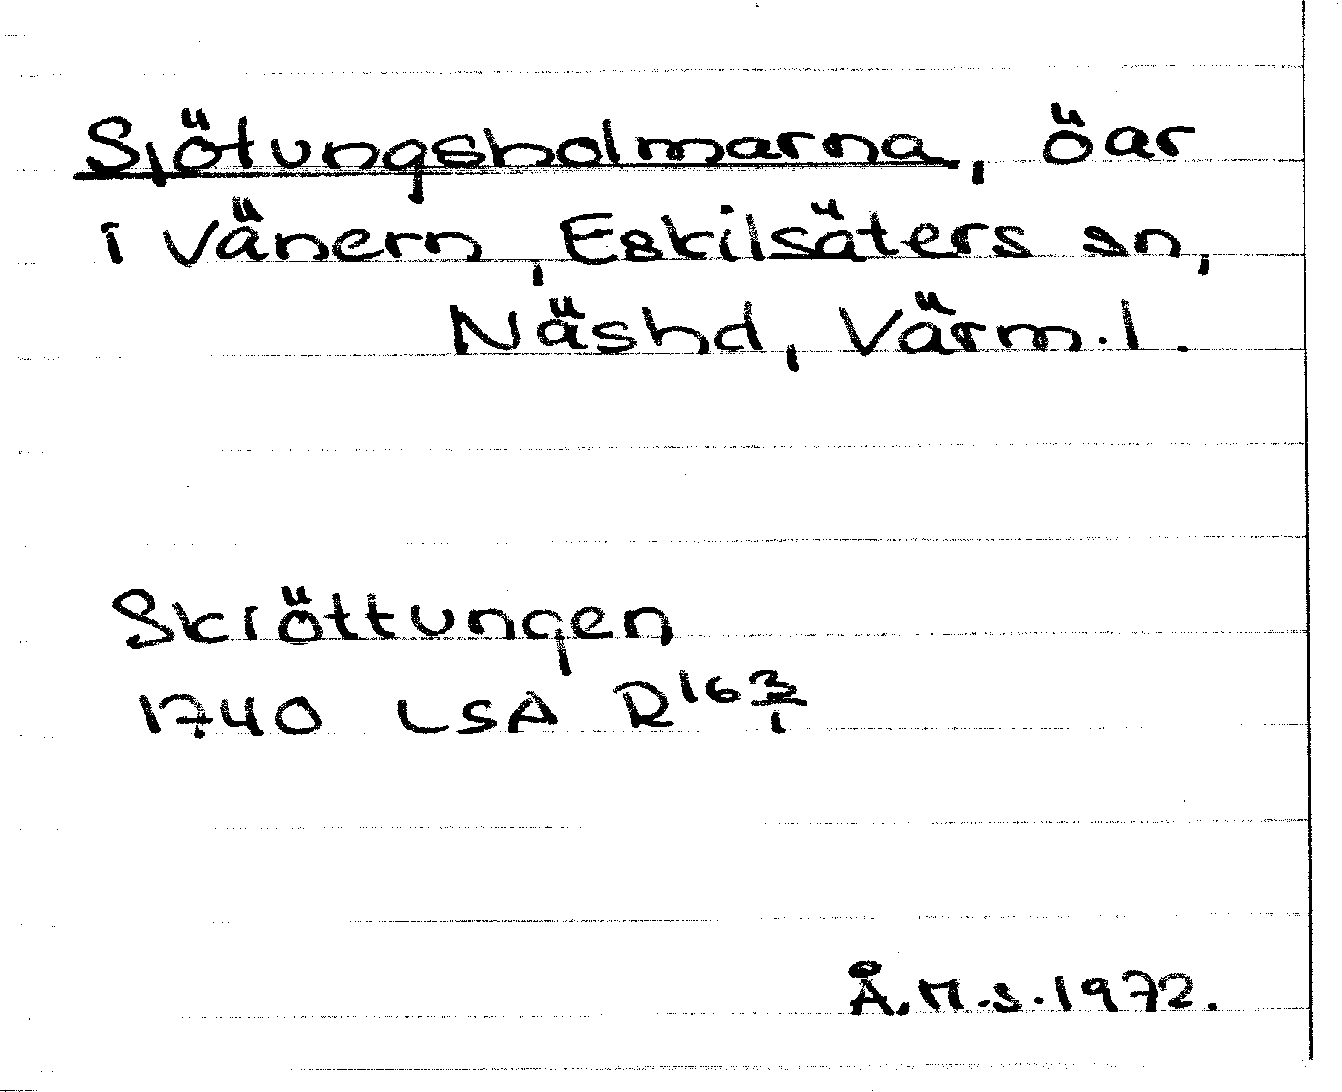 Sjötungsholmarna, öar
i Vänern, Eskilsäters sn,
Näshd, Värm.l.
Skröttungen
1740 LSA R 16 3/1
Å.M.S. 1972.